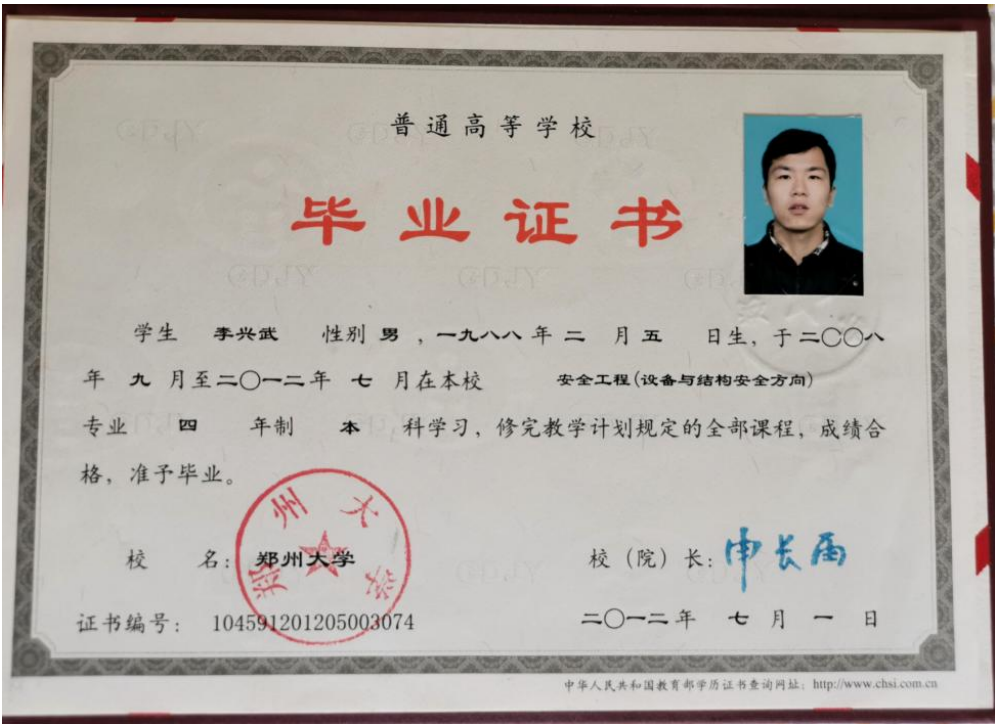 普通高等学校
毕业证书
学生 李兴武 性别 男 ，一九八八 年 二 月 五 日生，于 二〇〇八
年 九 月至 二〇一二 年 七 月在本校 安全工程(设备与结构安全方向)
专业 四 年制 本 科学习，修完教学计划规定的全部课程，成绩合
格，准予毕业。
郑州大学
校 名：郑州大学
校（院）长：申长雨
证书编号： 104591201205003074
二〇一二 年 七 月 一 日
中华人民共和国教育部学历证书查询网址：http://www.chsi.com.cn